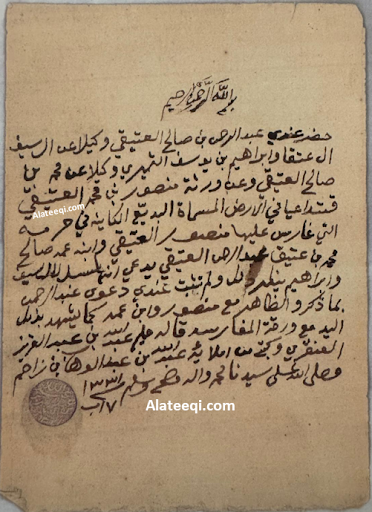 بسم الله الرحمن الرحيم
حضر عندي عبدالرحمن بن صالح العتيقي وكيلا عن
ال عتيقا وابراهيم بن يوسف وكيلا عن محمد بن
صالح العتيقي وعن ورثة منصور بن محمد العتيقي
Alateeqi.com
فتداعيا في الارض المسماة البديع الكاينة في حرمه
التي غارس عليها منصور العتيقي وابنه حمد صالح
محمد بن عتيق عبدالرحمن العتيقي يدعي
وابراهيم ينكر ولم تثبت عندي دعوى عبدالرحمن
بما ذكر والظاهر مع منصور وابن حمد كما يشهد بذلك
اليد مع ورقة المغارسة قاله عبدالله بن عبدالعزيز
العنقري وكتبه من املائه عبدالله بن عبدالوهاب بن زاحم
وصلى الله على سيدنا محمد واله وصحبه وسلم ١٣٣١
Alateeqi.com